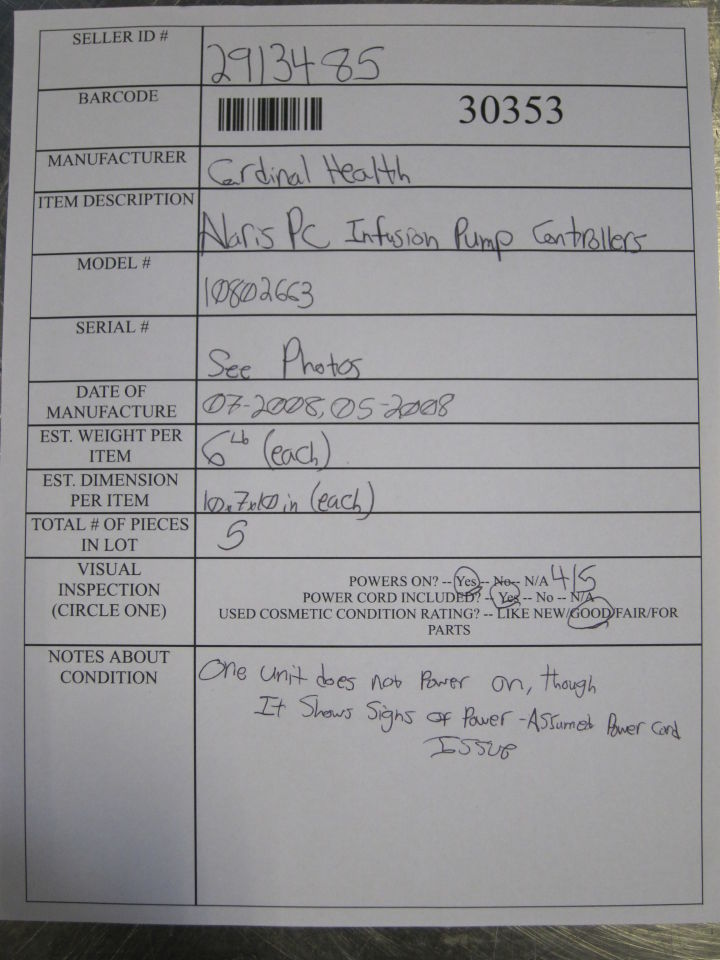 SELLER ID #
2913485
BARCODE
30353
MANUFACTURER
Cardinal Health
ITEM DESCRIPTION
Alaris PC Infusion Pump Controllers
MODEL #
10802663
SERIAL #
See Photos
DATE OF
MANUFACTURE
07-2008, 05-2008
EST. WEIGHT PER
ITEM
6 lb (each)
EST. DIMENSION
PER ITEM
10x7x10 in (each)
TOTAL # OF PIECES
IN LOT
5
VISUAL
INSPECTION
(CIRCLE ONE)
POWERS ON? -- Yes -- No -- N/A 4/5
POWER CORD INCLUDED? -- Yes -- No -- N/A
USED COSMETIC CONDITION RATING? -- LIKE NEW/GOOD/FAIR/FOR
PARTS
NOTES ABOUT
CONDITION
One unit does not Power on, though
It Shows Signs of Power - Assumed Power Cord
Issue